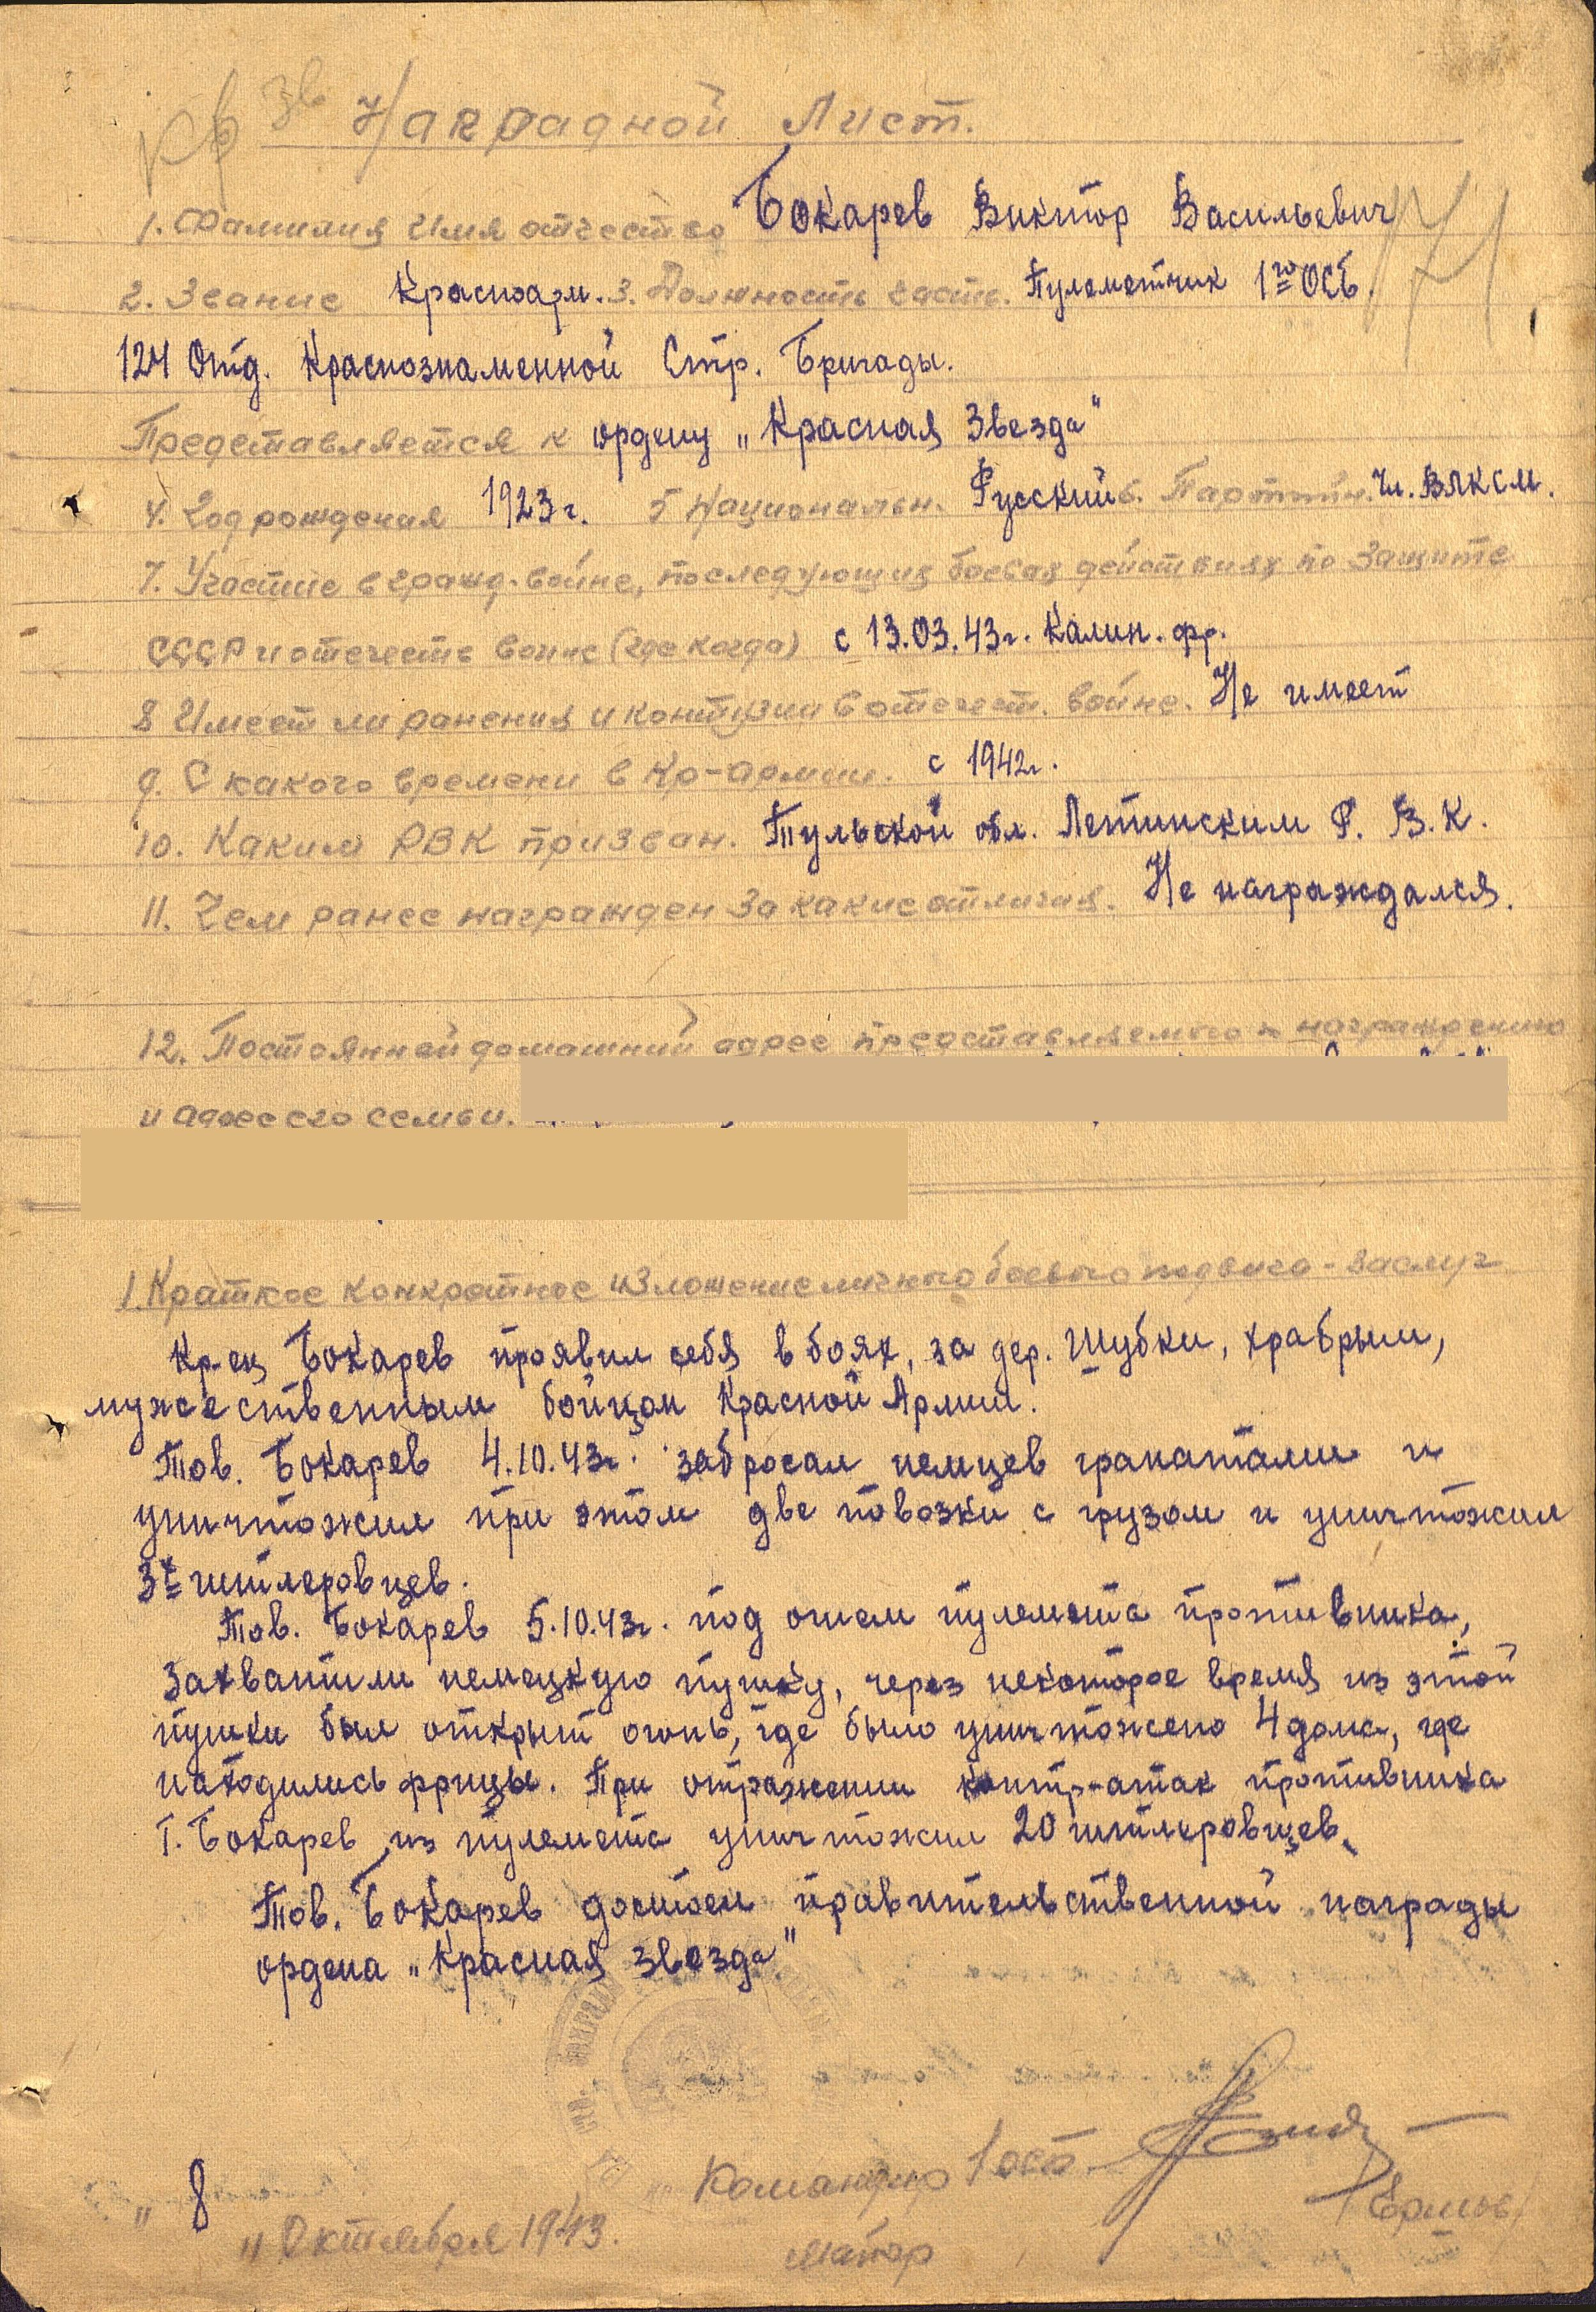 Кр Зв
Наградной Лист.
1. Фамилия Имя отчество Бокарев Виктор Васильевич
2. Звание Красноарм. 3. Должность часть. Пулеметчик 1го ОСБ.
124 Отд. Краснознаменной Стр. Бригады.
Представляется к ордену „Красная Звезда"
4. Год рождения 1923г. 5 Национальн. Русский 6. Партийн. Чл. ВЛКСМ.
7. Участие в гражд. войне, последующих боевых действиях по защите
СССР и отечеств войне (где когда) с 13.03.43г. Калин. фр.
8 Имеет ли ранения и контузии в отечест. войне. Не имеет
9. С какого времени в Кр-армии. с 1942г.
10. Каким РВК призван. Тульской обл. Лаптинским Р. В. К.
11. Чем ранее награжден За какие отличия. Не награждался.
12. Постоянный домашний адрес представляемого к награждению
и адрес его семьи.
1. Краткое конкретное изложение личного боевого подвига - заслуг
Кр-ец Бокарев проявил себя в боях, за дер. Шубки, храбрым,
мужественным бойцом Красной Армии.
Тов. Бокарев 4.10.43г. забросал немцев гранатами и
уничтожил при этом две повозки с грузом и уничтожил
3х гитлеровцев.
Тов. Бокарев 5.10.43г. под огнем пулемета противника,
захватили немецкую пушку, через некоторое время из этой
пушки был открыт огонь, где было уничтожено 4 дома, где
находились фрицы. При отражении контр-атак противника
Т. Бокарев из пулемета уничтожил 20 гитлеровцев.
Тов. Бокарев достоен правительственной награды
ордена „Красная звезда"
Командир 1 осб
"8" Октября 1943.
майор